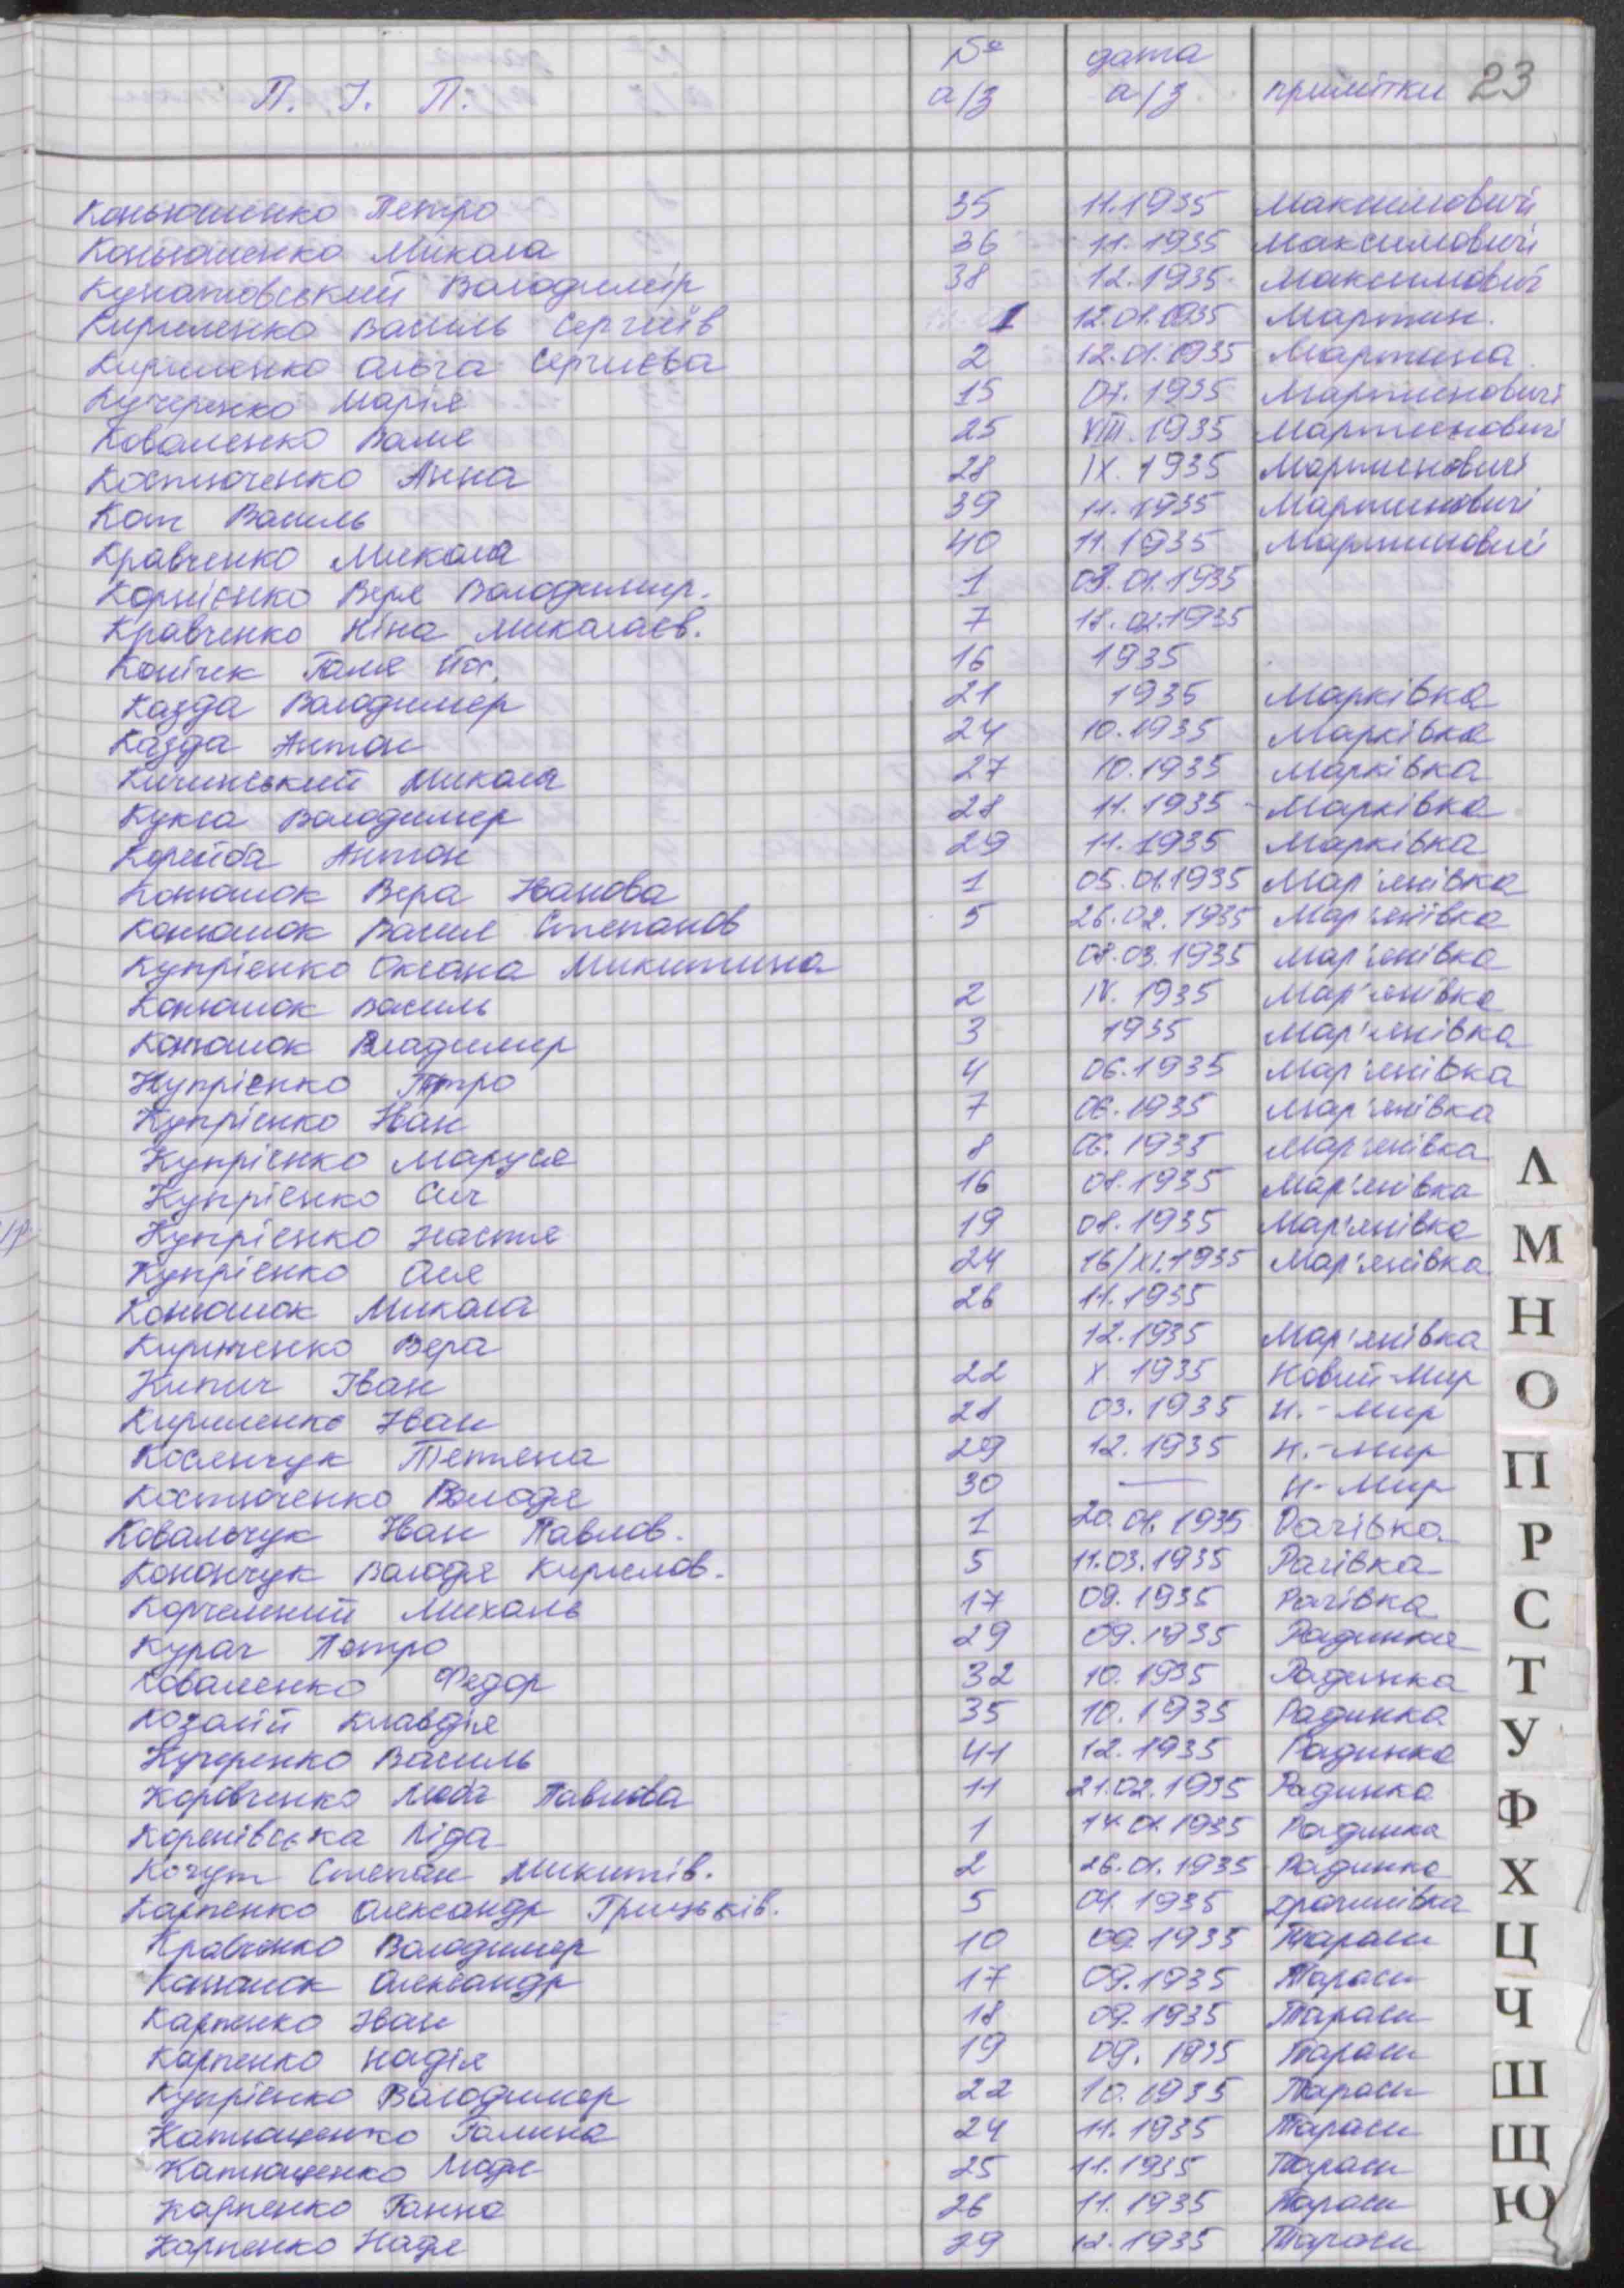 № дата
П. І. П. а/з а/з примітки 23
Коньюшенко Петро 35 11.1935 Максимовичі
Коньюшенко Микола 36 11.1935 Максимовичі
Володимир 38 12.1935 Максимович
Кириленко Василь Сергіїв 1 12.01.1935 Мартин.
Кириленко Ольга Сергиєва 2 12.01.1935 Мартина
Кучеренко Марія 15 07.1935 Мартиновичі
Коваленко Валя 25 VIII.1935 Мартиновичі
Костюченко Анна 28 IX.1935 Мартиновичі
Кот Василь 39 11.1935 Мартиновичі
Кравченко Микола 40 11.1935 Мартиновичі
Корнієнко Вера Володимир. 1 01.1935
Кравченко Ніна Миколаєв. 7 18.02.1935
Галя Йос. 16 1935
Казда Володимер 21 1935 Марківка
Казда Антон 24 10.1935 Марківка
Кичинський Микола 27 10.1935 Марківка
Кукса Володимер 28 11.1935 Марківка
Корейба Антон 29 11.1935 Марківка
Конюшок Вера Иванова 1 05.01.1935 Мар'янівка
Конюшок Василь Степанов 5 26.02.1935 Мар'янівка
Купрієнко Оксана Микитина 08.03.1935 Мар'янівка
Конюшок Василь 2 IV.1935 Мар'янівка
Конюшок Владимир 3 1935 Мар'янівка
Купрієнко Петро 4 06.1935 Мар'янівка
Купрієнко Иван 7 06.1935 Мар'янівка
Купрієнко Маруся 8 06.1935 Мар'янівка
Купрієнко 16 08.1935 Мар'янівка
Купрієнко Настя 19 08.1935 Мар'янівка
Купрієнко Оля 24 16/XI.1935 Мар'янівка
Конюшок Микола 26 11.1935
Вера 12.1935 Мар'янівка
Кипич Іван 22 X.1935 Новий-Мир
Кириленко Иван 28 03.1935 Н.-Мир
Косянчук Тетяна 29 12.1935 Н.-Мир
Костюченко Володя 30 — Н-Мир
Ковальчук Иван Павлов. 1 20.01.1935 Рагівка
Конончук Володя Кирилов. 5 11.03.1935 Рагівка
Корчемний Михаль 17 09.1935 Рагівка
Курач Петро 29 09.1935 Радинка
Коваленко Федор 32 10.1935 Радинка
Козалій Клавдія 35 10.1935 Радинка
Кучеренко Василь 41 12.1935 Радинка
Коровченко Люба Павлова 11 21.02.1935 Радинка
Коренівська Ліда 1 14.01.1935 Радинка
Когут Степан Микитів. 2 26.01.1935 Радинка
Карпенко Олександр Грицьків. 5 1935
Кравченко Володимер 10 09.1935 Тараси
Конюшок Олександр 17 09.1935 Тараси
Карпенко Иван 18 09.1935 Тараси
Карпенко Надія 19 09.1935 Тараси
Купрієнко Володимер 22 10.1935 Тараси
Катющенко Галина 24 11.1935 Тараси
Катющенко 25 11.1935 Тараси
Карпенко Ганна 26 11.1935 Тараси
Карпенко Надя 29 12.1935 Тараси
Л
М
Н
О
П
Р
С
Т
У
Ф
Х
Ц
Ч
Ш
Щ
Ю